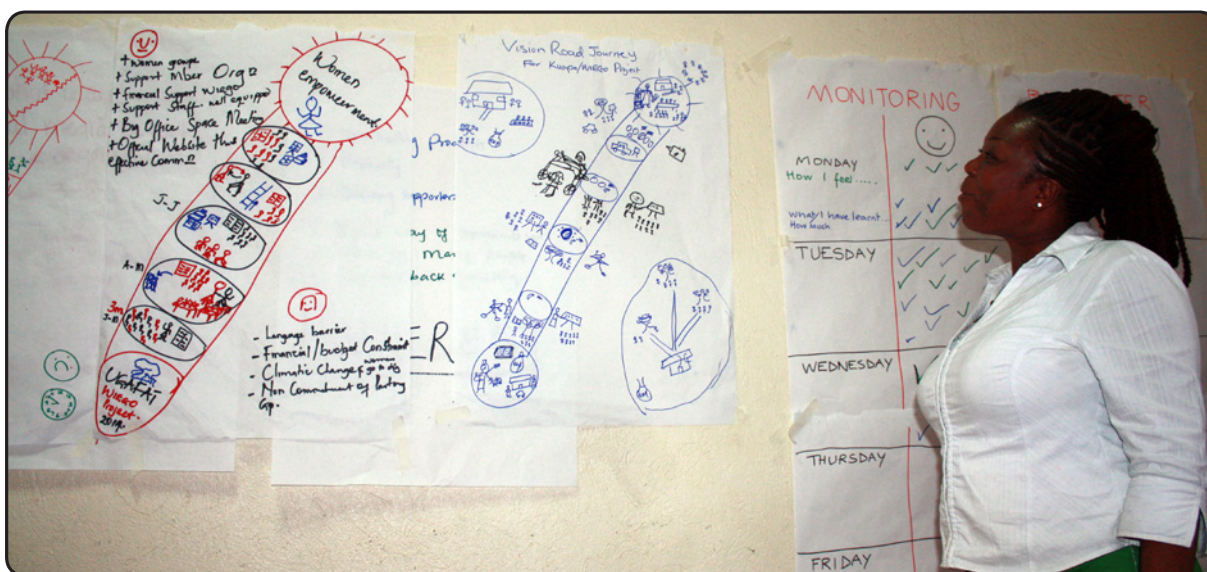 + Women groups
+ Support Mber Org
+ Financial Support WIEGO
+ Support Staff well equipped
+ Big Office Space Meeting
+ Official Website that
effective Comm
Women
empowerment
J-J
A-M
3m
J-M
WIEGO
Project
- Langage barrier
- Financial/budget Constraint
- Climatic Change
- Non Commitment of
Gp.
Vision Road Journey
For WIEGO Project
back
ER
MONITORING
MONDAY
How I feel.....
What I have learnt...
How much
TUESDAY
WEDNESDAY
THURSDAY
FRIDAY